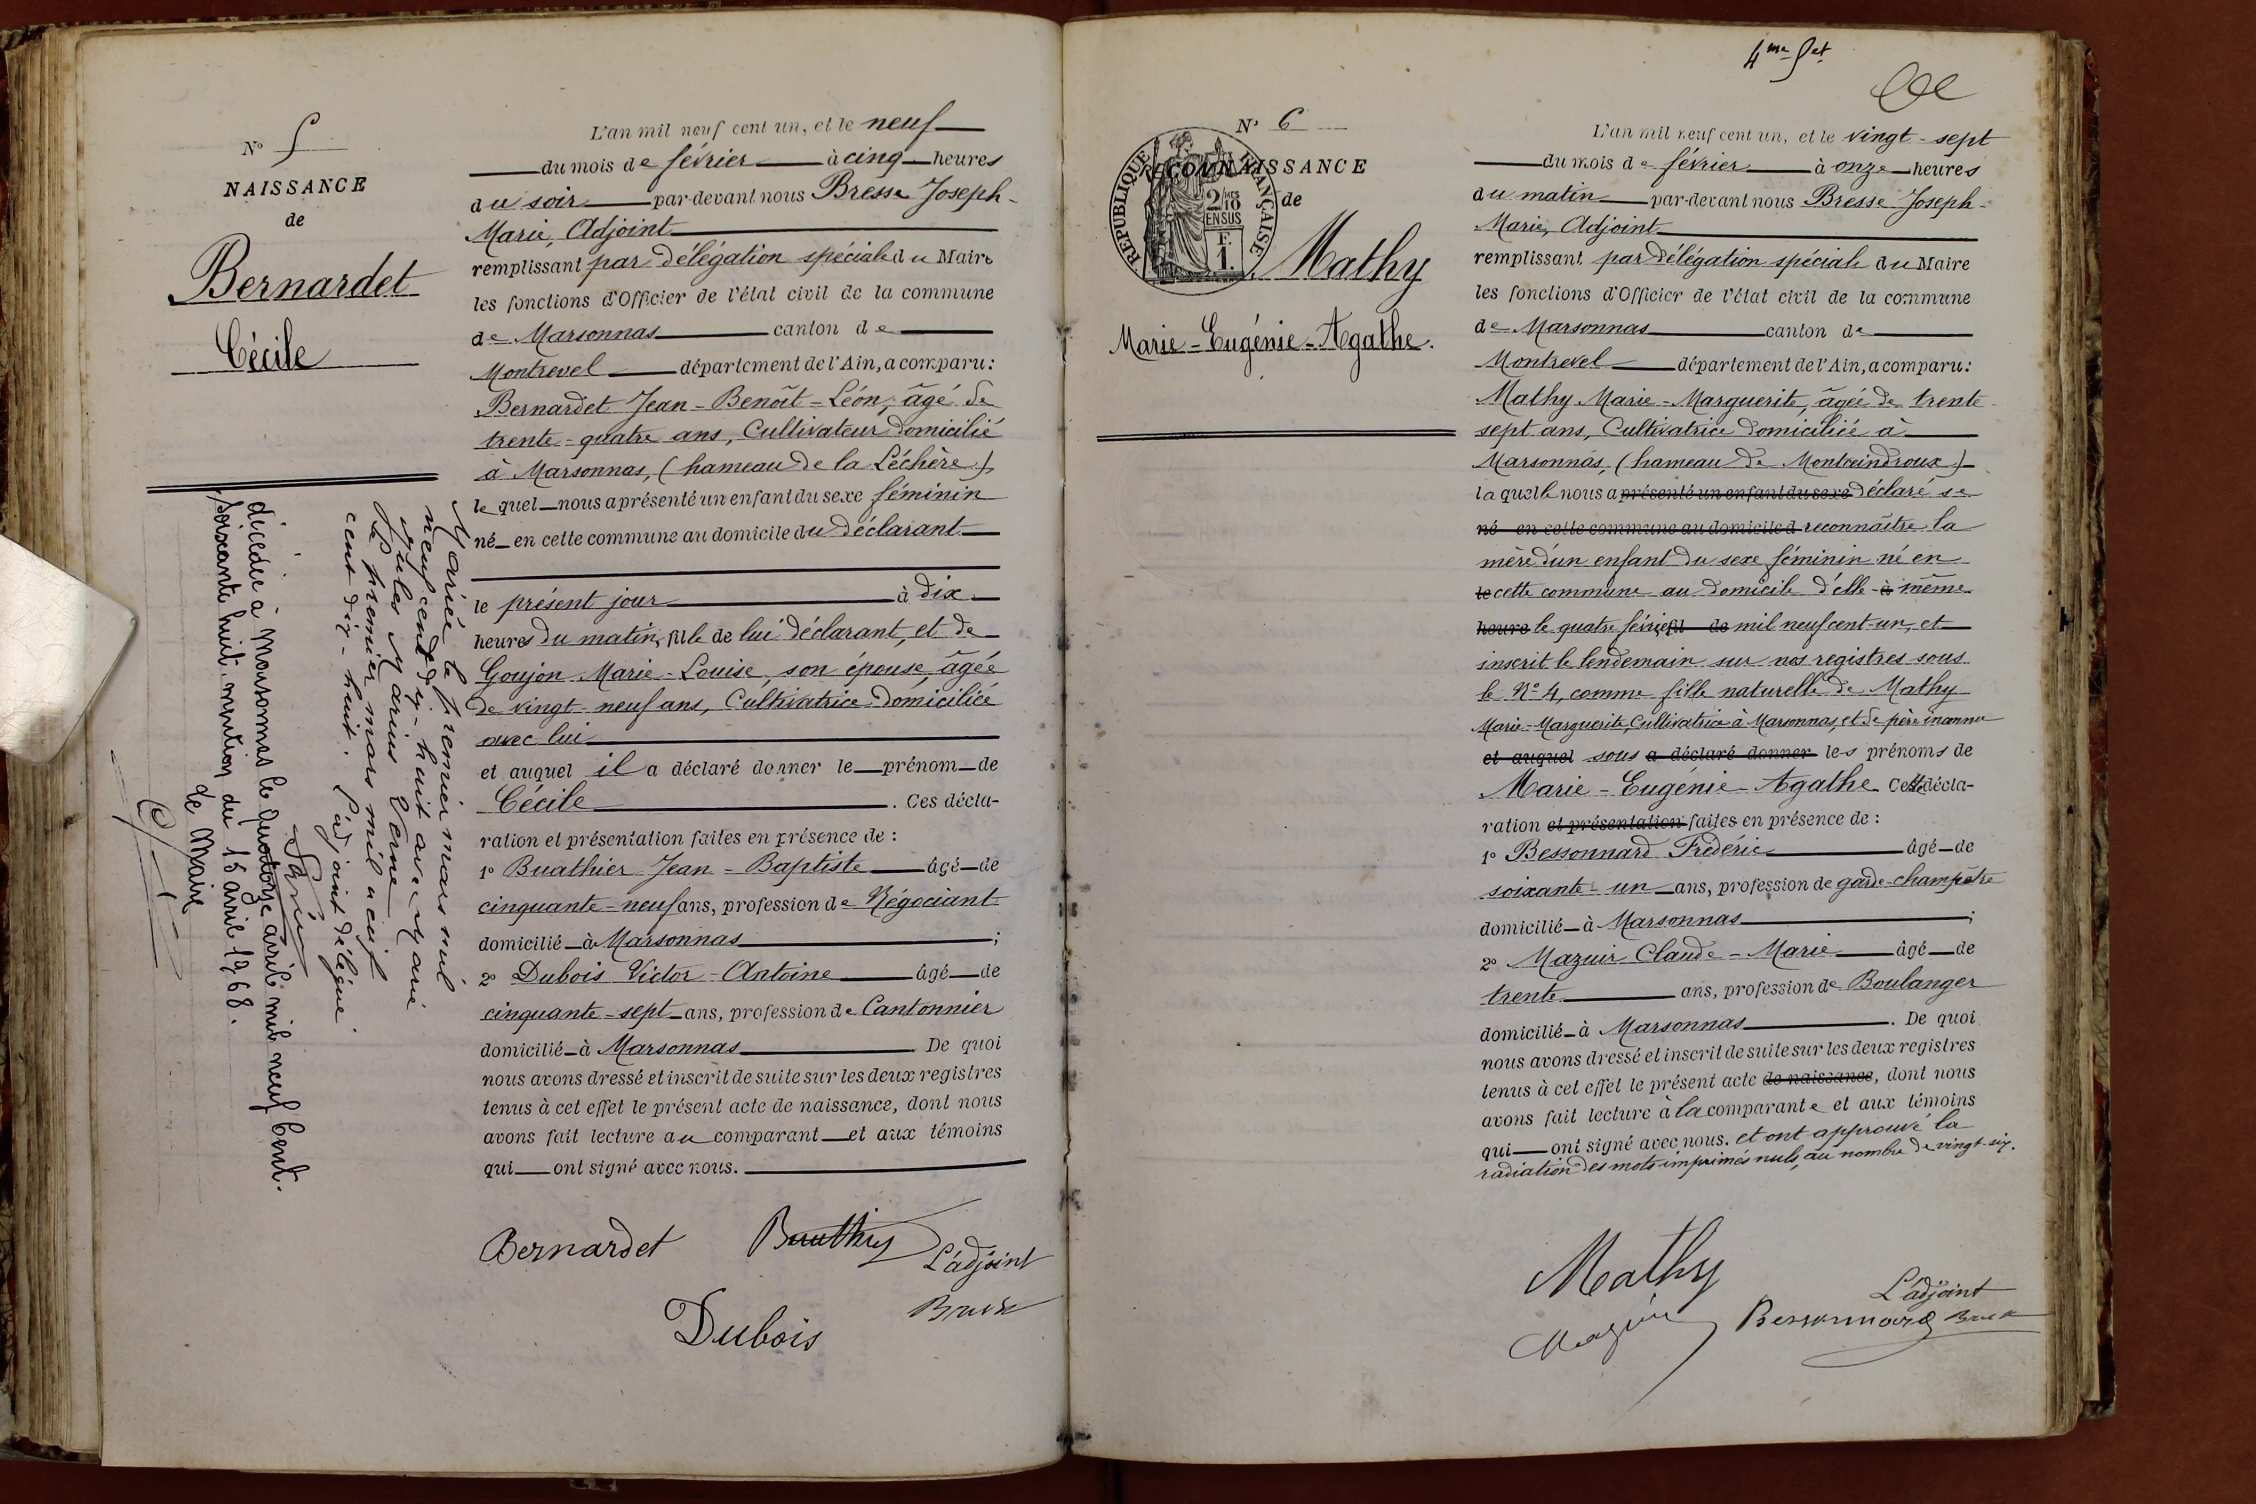 N° 5
NAISSANCE
de
Bernardet
Cécile
Mariée le premier mars mil
neuf cent dix-huit avec Marie
Jules Marius Verne
Le premier mars mil neuf
cent dix-huit. L'adjoint délégué
décédée à Marsonnas le quatorze avril mil neuf cent
soixante huit. mention du 15 avril 1968.
Le Maire
L'an mil neuf cent un, et le neuf
du mois de février à cinq heures
du soir par-devant nous Bresse Joseph-
Marie, Adjoint
remplissant par délégation spéciale du Maire
les fonctions d'Officier de l'état civil de la commune
de Marsonnas canton de
Montrevel département de l'Ain, a comparu:
Bernardet Jean-Benoît-Léon, âgé de
trente-quatre ans, Cultivateur domicilié
à Marsonnas, (hameau de la Léchère)
lequel nous a présenté un enfant du sexe féminin
né en cette commune au domicile du déclarant
le présent jour à dix
heures du matin, fille de lui déclarant, et de
Goujon Marie-Louise, son épouse, âgée
de vingt-neuf ans, Cultivatrice domiciliée
avec lui
et auquel il a déclaré donner le prénom de
Cécile. Ces décla-
ration et présentation faites en présence de :
1° Buathier Jean-Baptiste âgé de
cinquante-neuf ans, profession de Négociant
domicilié à Marsonnas ;
2° Dubois Victor-Antoine âgé de
cinquante-sept ans, profession de Cantonnier
domicilié à Marsonnas De quoi
nous avons dressé et inscrit de suite sur les deux registres
tenus à cet effet le présent acte de naissance, dont nous
avons fait lecture au comparant et aux témoins
qui ont signé avec nous.
Bernardet Buathier L'adjoint
Dubois Bresse
4me Fet
N° 6
RECONNAISSANCE
de
RÉPUBLIQUE FRANÇAISE
2/10 EN SUS
F. 1.
Mathy
Marie-Eugénie-Agathe.
L'an mil neuf cent un, et le vingt-sept
du mois de février à onze heures
du matin par-devant nous Bresse Joseph-
Marie, Adjoint
remplissant par délégation spéciale du Maire
les fonctions d'Officier de l'état civil de la commune
de Marsonnas canton de
Montrevel département de l'Ain, a comparu:
Mathy Marie-Marguerite, âgée de trente-
sept ans, Cultivatrice domiciliée à
Marsonnas, (hameau de Montreindroux)
laquelle nous a présenté un enfant du sexe déclaré se
né en cette commune au domicile d reconnaître la
mère d'un enfant du sexe féminin né en
le cette commune au domicile d'elle à même
heure le quatre février fil de mil neuf cent-un, et
inscrit le lendemain sur nos registres sous
le N° 4, comme fille naturelle de Mathy
Marie-Marguerite, Cultivatrice à Marsonnas, et de père inconnu
et auquel sous a déclaré donner les prénoms de
Marie-Eugénie-Agathe. Cette décla-
ration et présentation faites en présence de :
1° Bessonnard Frédéric âgé de
soixante-un ans, profession de garde-champêtre
domicilié à Marsonnas ;
2° Mazuir Claude-Marie âgé de
trente ans, profession de Boulanger
domicilié à Marsonnas. De quoi
nous avons dressé et inscrit de suite sur les deux registres
tenus à cet effet le présent acte de naissance, dont nous
avons fait lecture à la comparante et aux témoins
qui ont signé avec nous. et ont approuvé la
radiation des mots imprimés nuls, au nombre de vingt-six.
Mathy L'adjoint
Mazuir Bessonnard Bresse